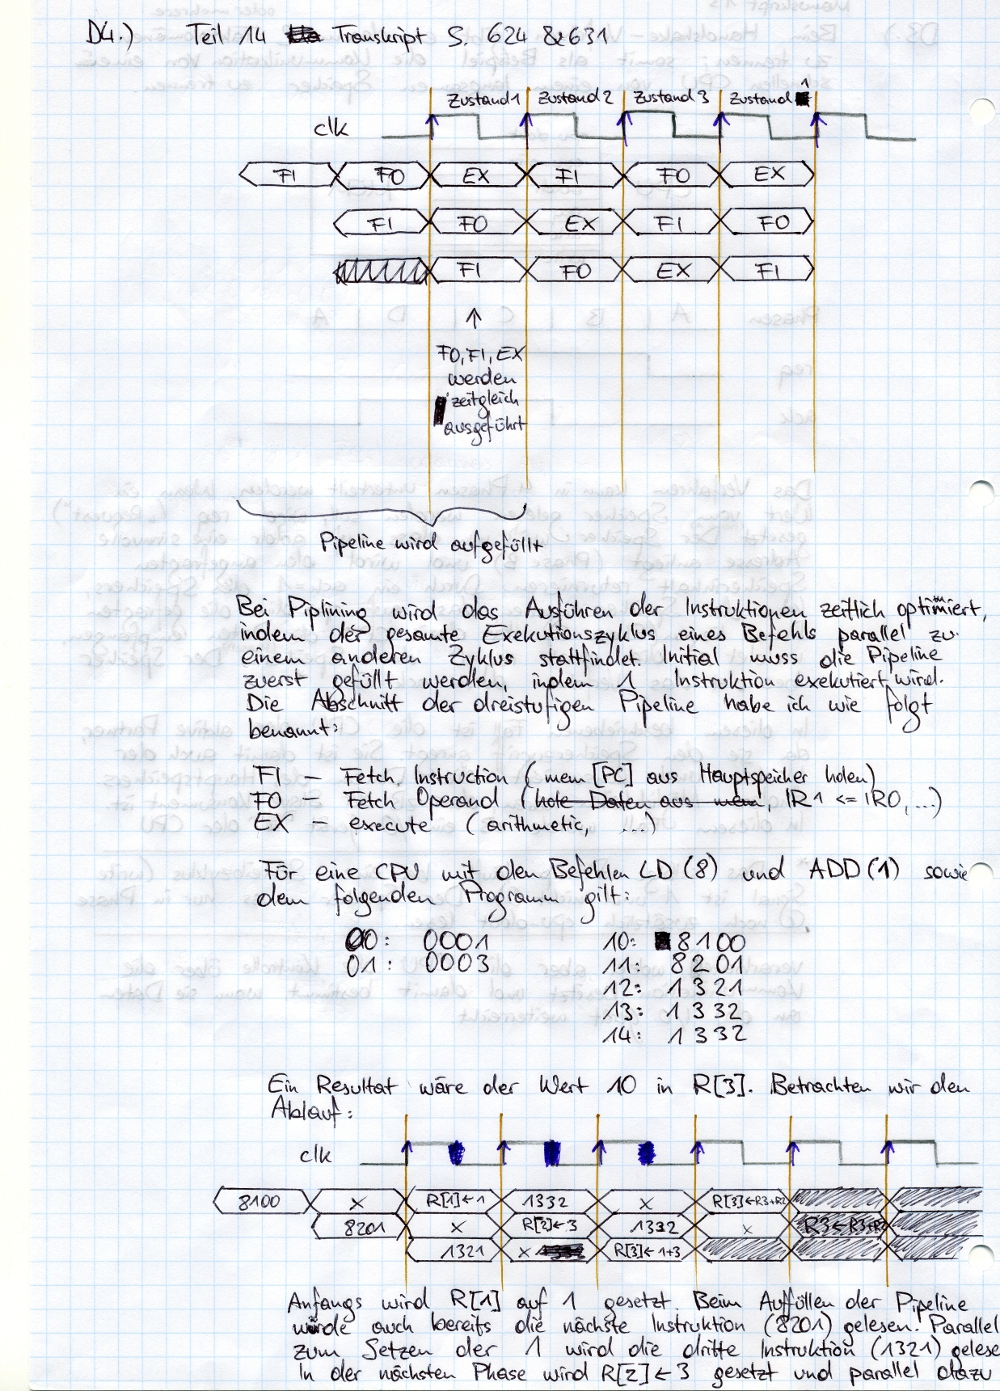 D4.) Teil 14 Transkript S. 624 & 631
Zustand 1 Zustand 2 Zustand 3 Zustand 1
clk
FI FO EX FI FO EX
FI FO EX FI FO
FI FO EX FI
↑
FO, FI, EX
werden
zeitgleich
ausgeführt
Pipeline wird aufgefüllt
Bei Piplining wird das Ausführen der Instruktionen zeitlich optimiert,
indem der gesamte Exekutionszyklus eines Befehls parallel zu
einem anderen Zyklus stattfindet. Initial muss die Pipeline
zuerst gefüllt werden, indem 1 Instruktion exekutiert wird.
Die Abschnitt der dreistufigen Pipeline habe ich wie folgt
benannt:
FI – Fetch Instruction (mem [PC] aus Hauptspeicher holen)
FO – Fetch Operand (hole Daten aus mem, IR1 <= IR0, ...)
EX – execute (arithmetic, ...)
Für eine CPU mit den Befehlen LD (8) und ADD (1) sowie
dem folgenden Programm gilt:
00: 0001 10: 8100
01: 0003 11: 8201
12: 1321
13: 1332
14: 1332
Ein Resultat wäre der Wert 10 in R[3]. Betrachten wir den
Ablauf:
clk
8100 x R[1]←1 1332 x R[3]←R3+R2
8201 x R[2]←3 1332 x R3←R3+R2
1321 x R[3]←1+3
Anfangs wird R[1] auf 1 gesetzt. Beim Auffüllen der Pipeline
würde auch bereits die nächste Instruktion (8201) gelesen. Parallel
zum Setzen der 1 wird die dritte Instruktion (1321) gelese
In der nächsten Phase wird R[2]←3 gesetzt und parallel dazu